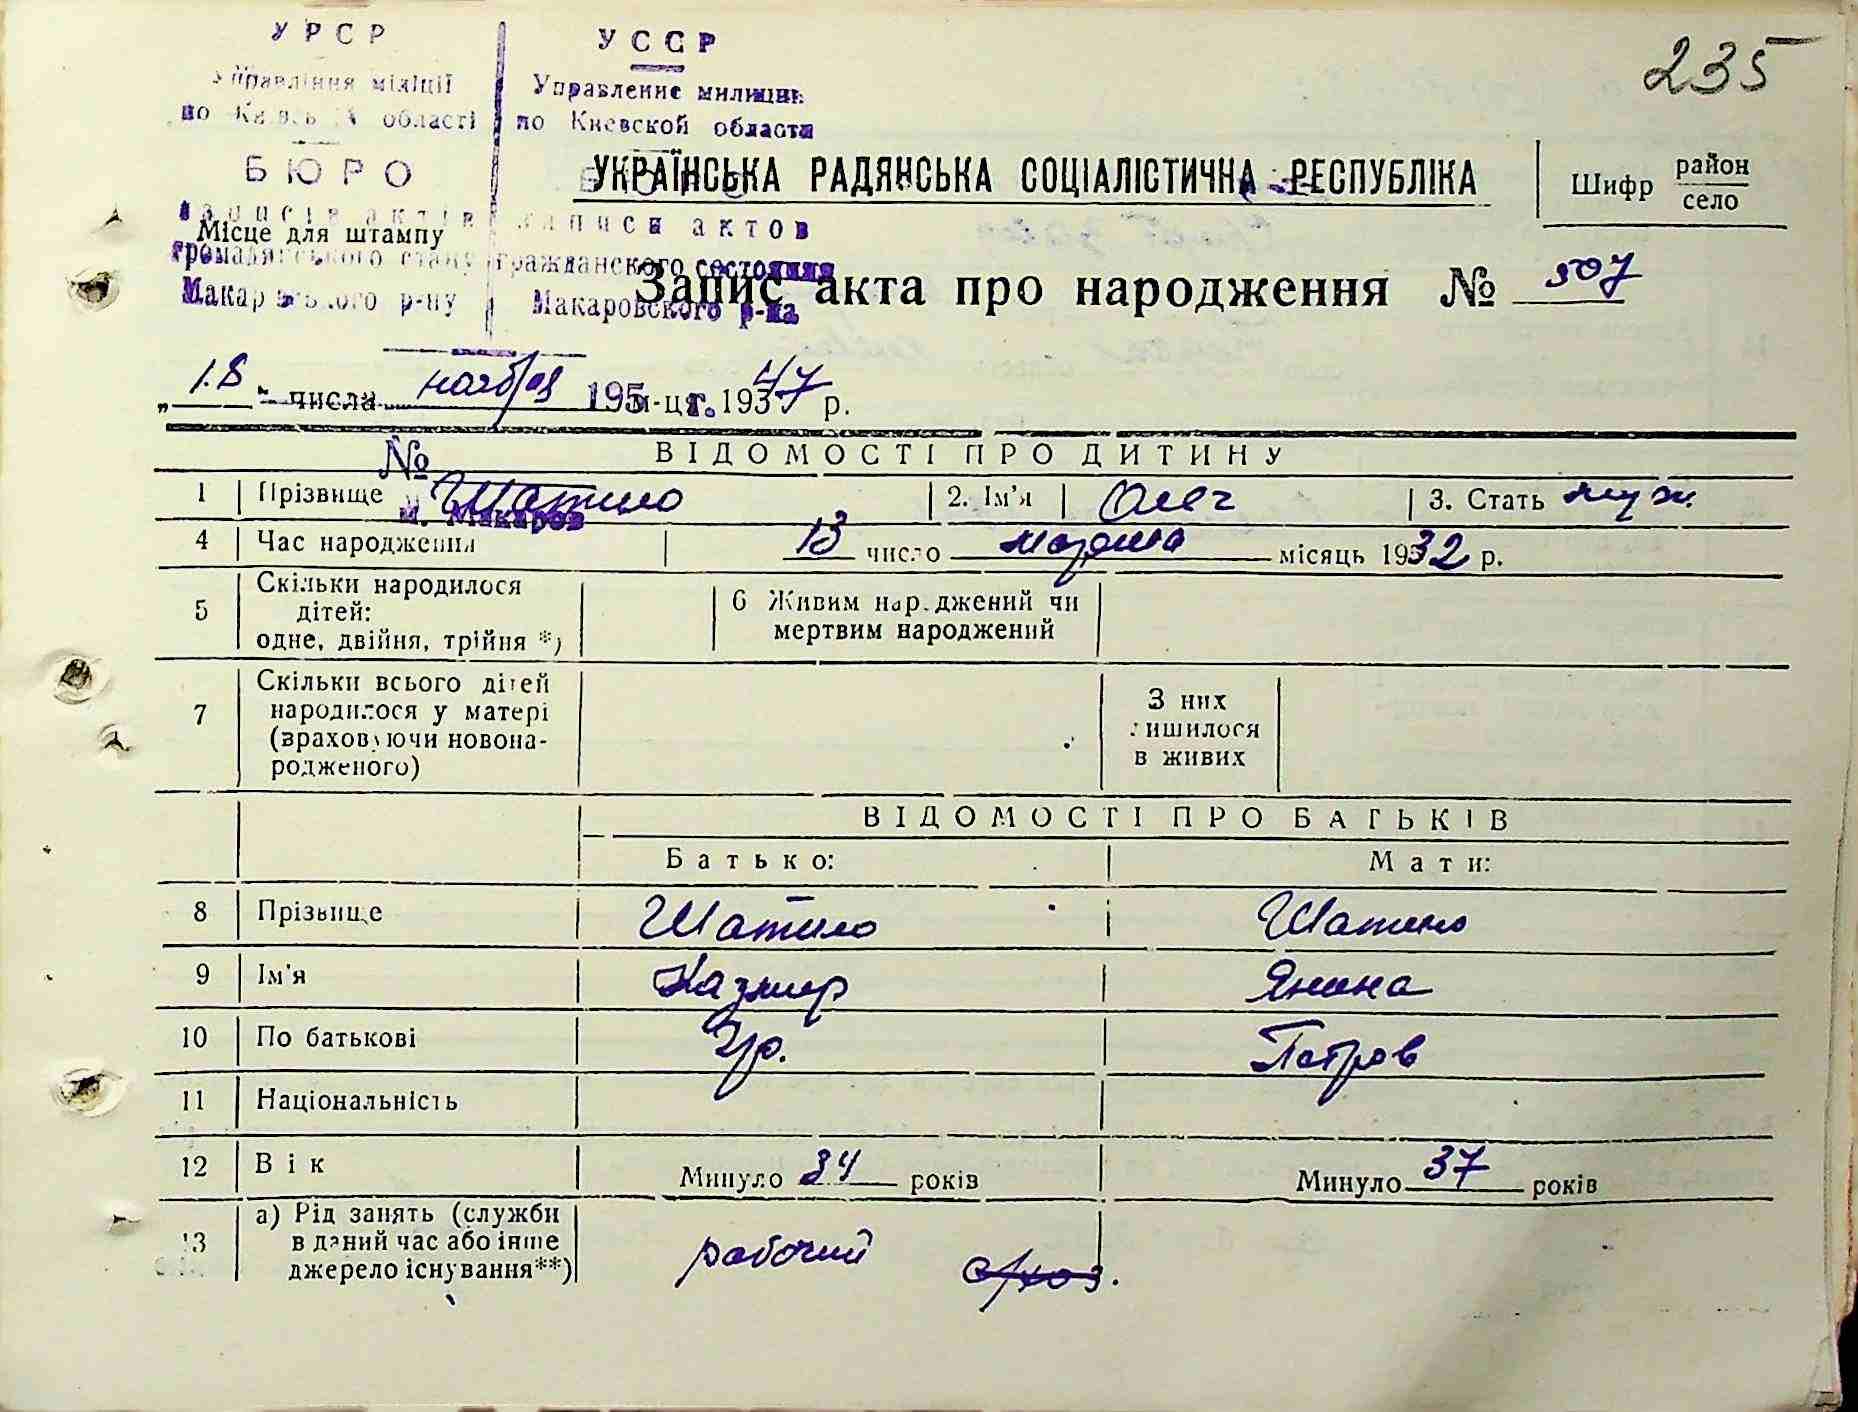 235
УРСР
Управління міліції
по Київській області
БЮРО
записів актів
громадянського стану
Макарівського р-ну
УССР
Управление милиции
по Киевской области
записи актов
гражданского состояния
Макаровского р-на
195 г.
№
м. Макаров
УКРАЇНСЬКА РАДЯНСЬКА СОЦІАЛІСТИЧНА РЕСПУБЛІКА
Шифр район
село
Місце для штампу
Запис акта про народження № 507
„18" числа ноября м-ця 1947 р.
ВІДОМОСТІ ПРО ДИТИНУ
1 Прізвище Шатило 2. Ім'я Олег 3. Стать муж.
4 Час народження 13 число марта місяць 1932 р.
5 Скільки народилося
дітей:
одне, двійня, трійня *)
6 Живим народжений чи
мертвим народжений
7 Скільки всього дітей
народилося у матері
(враховуючи новона-
родженого)
З них
лишилося
в живих
ВІДОМОСТІ ПРО БАТЬКІВ
Батько: Мати:
8 Прізвище Шатило Шатило
9 Ім'я Казмир Янина
10 По батькові Гр. Петров
11 Національність
12 Вік Минуло 34 років Минуло 37 років
13 а) Рід занять (служби
в даний час або інше
джерело існування**)
рабочий с/хоз.